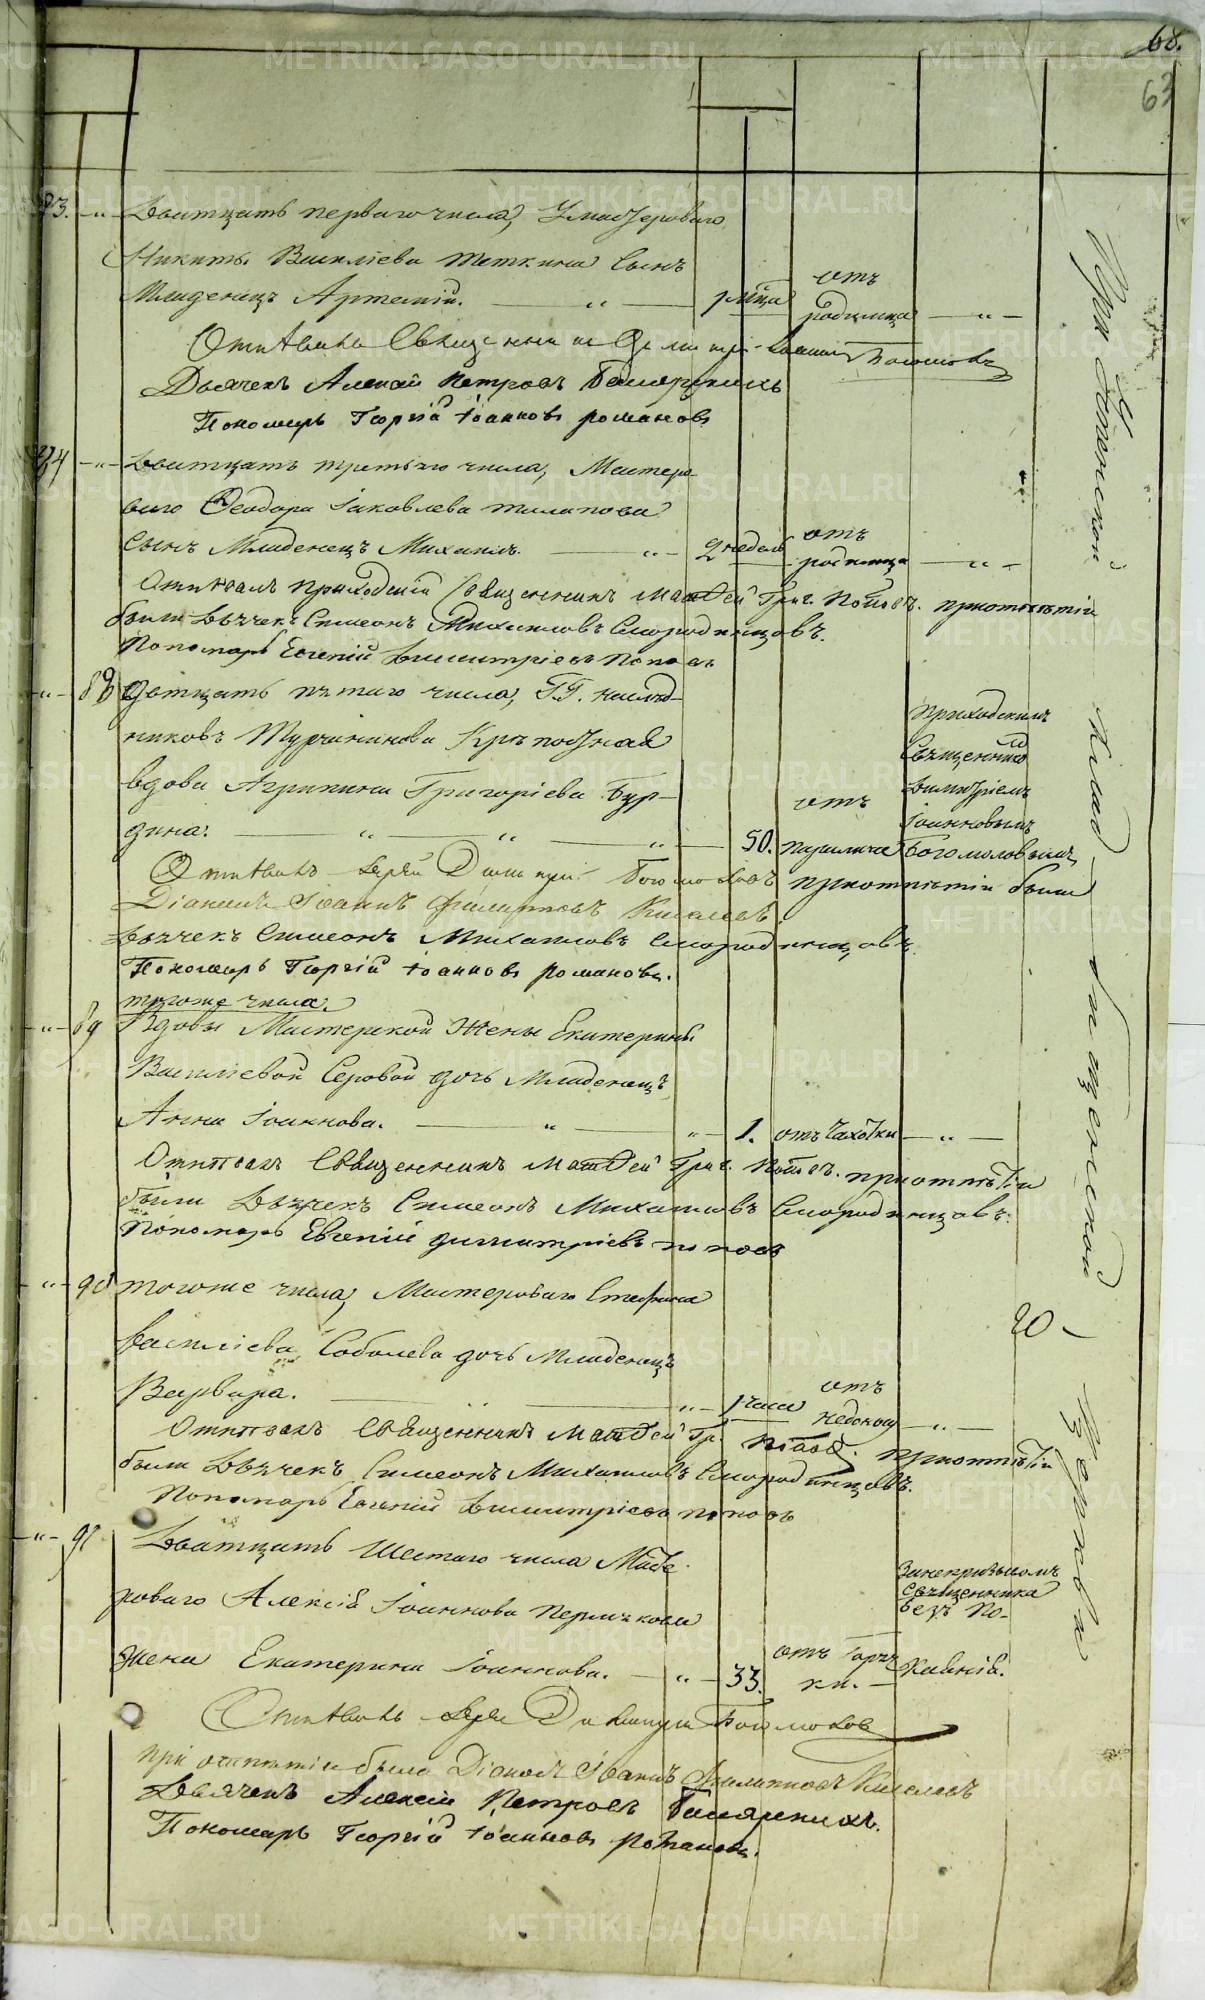 68.
63
83. Дватцать перваго числа, Умастероваго
Никиты Василіева Теткина сынъ
Младенецъ Артемій. 1 м̃ца отъ родимца
Отпѣвалъ Священникъ Димитрій Богомоловъ
Дьячекъ Алексѣй Петровъ Башарскихъ
Пономарь Георгій Іоанновъ Романовъ
84 Дватцать третьяго числа, Мастеро
ваго Ѳеодора Іаковлева
сынъ Младенецъ Михаилъ. 2 недель отъ родимца
Отпѣвалъ приходскій Священникъ Матѳей Григ. Поповъ. приотпѣтіи
были Дьячекъ Симеонъ Михаиловъ Смородинцовъ.
Пономарь Евгеній Димитріевъ Поповъ
88 Дватцать пятаго числа, Г.Г. наслѣд-
никовъ Турчанинова Крѣпостная
вдова Агрипина Григоріева Бур-
дина. 50. отъ паралича
приходскимъ
Священнико
Димитріемъ
Іоанновымъ
Богомоловымъ
Отпѣвалъ Іерей Димитрій Богомоловъ приотпѣтіи были
Діаконъ Іоаннъ Филиповъ Киселевъ
Дьячекъ Симеонъ Михаиловъ Смородинцовъ.
Пономарь Георгій Іоанновъ Романовъ.
тогоже числа.
89 Вдовы Мастерской Жены Екатерины
Василіевой Серовой дочь Младенецъ
Анна Іоаннова. 1. отъ Чахотки
Отпѣвалъ Священникъ Матѳей Григ. Поповъ. приотпѣтіи
были Дьячекъ Симеонъ Михаиловъ Смородинцовъ.
Пономарь Евгеній Димитріевъ Поповъ
90 тогоже числа, Мастероваго Стефана
Василіева Соболева дочь Младенецъ
Варвара. 1 часа отъ недонош
Отпѣвалъ Священникъ Матѳей Гр. Поповъ. приотпѣтіи
были Дьячекъ Симеонъ Михаиловъ Смородинцовъ.
Пономарь Евгеній Димитріевъ Поповъ
91 Дватцать Шестаго числа Масте
роваго Алексія Іоаннова
жена Екатерина Іоаннова. 33. отъ Горяч
ки.
Священника
безъ По-
каянія.
Отпѣвалъ Іерей Димитрій Богомоловъ
при отпѣтіи были Діаконъ Іоаннъ Филиповъ Киселевъ
Дьячекъ Алексѣй Петровъ Башарскихъ.
Пономарь Георгій Іоанновъ Романовъ.
При Клад-бищенской Церкви
20